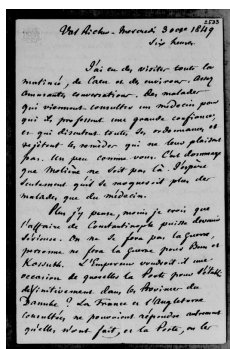 2583
Val Richer - Mercredi 3 oct 1849
Six heures.
J'ai eu des visites toute la
matinée, de Caen et des environs. Assez
amusantes conversations. Des malades
qui viennent consulter un médecin pour
qui ils professent une grande confiance,
et qui discutent toutes ses ordonnances et
rejettent les remèdes qui ne leur plaisent
pas. Un peu comme vous. C'est dommage
que Molière ne soit pas là. J'espère
seulement qu'il se moquerait plus des
malades, que du médecin.
Plus j'y pense, moins je crois que
l'affaire de Constantinople puisse devenir
sérieuse. On ne se fera pas la guerre,
personne ne fera la guerre pour Bem et
Kossuth. L'Empereur voudrait-il une
occasion de querelles la Porte pour s'établir
définitivement dans les Provinces du
Danube ? La France et l'Angleterre
consultées, ne pouvaient répondre autrement
qu'elles n'ont fait, et la Porte, en les